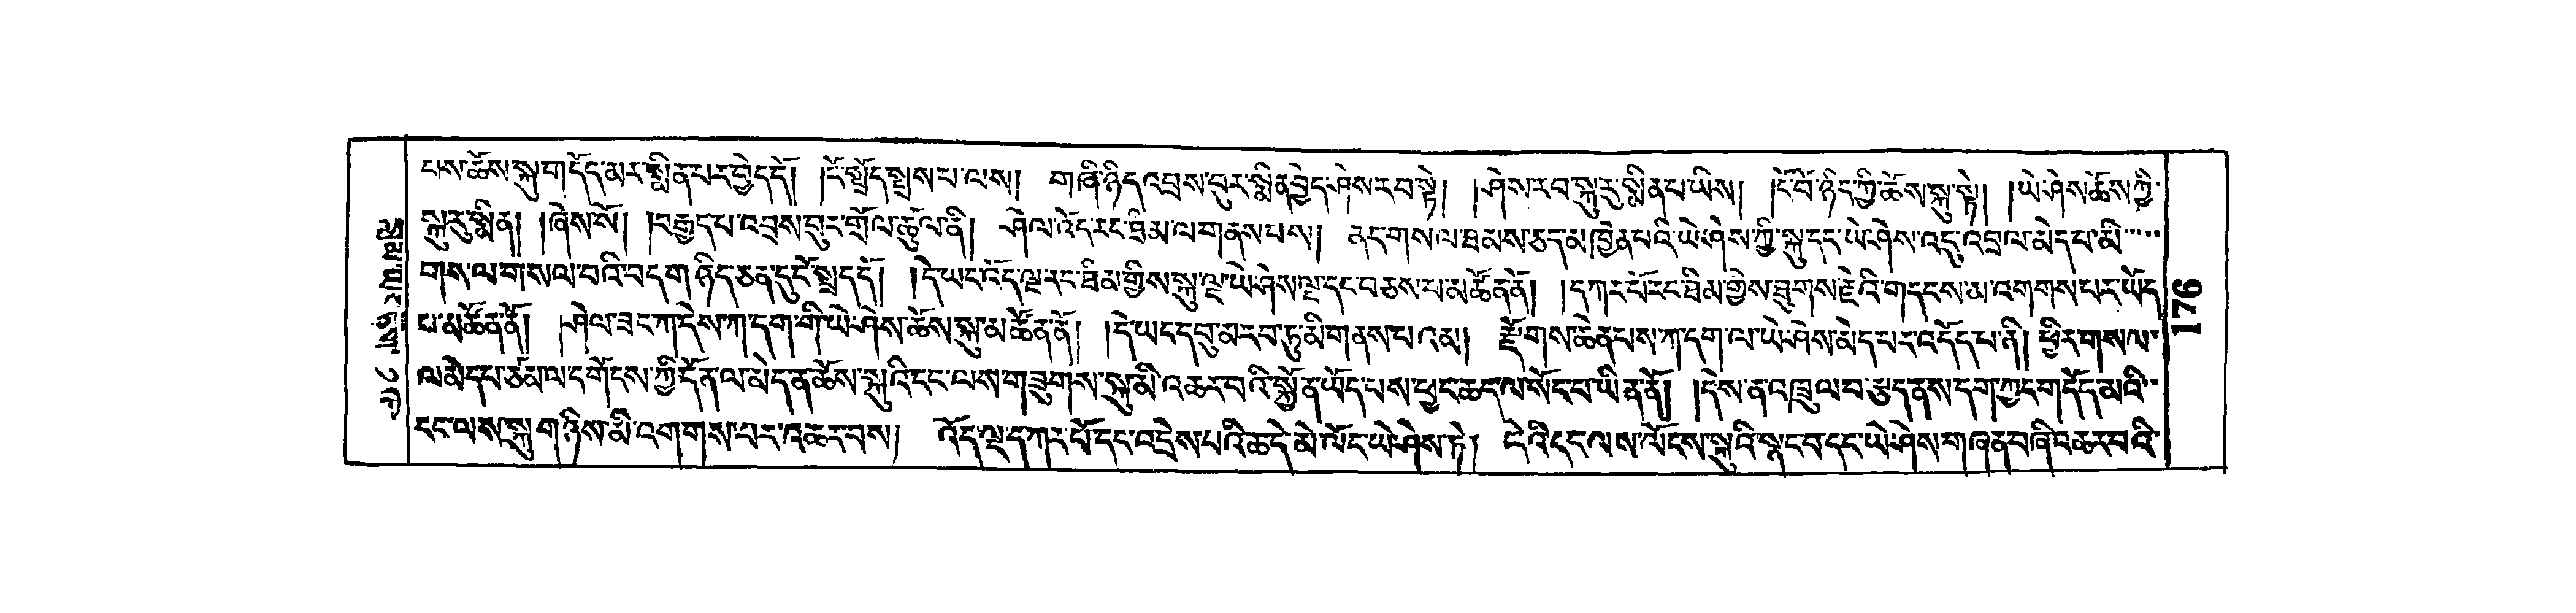 པས་ཆོས་སྐུ་གདོད་མར་སྨིན་པར་བྱེད་དོ། །ངོ་སྤྲོད་སྤྲས་པ་ལས། གཞི་ཉིད་འབྲས་བུར་སྨིན་བྱེད་ཤེས་རབ་སྟེ། །ཤེས་རབ་སྐུ་རུ་སྨིན་པ་ཡིས། །ངོ་བོ་ཉིད་ཀྱི་ཆོས་སྐུ་སྟེ། །ཡེ་ཤེས་ཆོས་ཀྱི་
སྐུ་རུ་སྨིན། །ཞེས་སོ། །བརྒྱད་པ་འབྲས་བུར་གྲོལ་ཚུལ་ནི། ཤེལ་འོད་རང་ཐིམ་ལ་གནས་པས། ནང་གསལ་ཐམས་ཅད་མཁྱེན་པའི་ཡེ་ཤེས་ཀྱི་སྐུ་དང་ཡེ་ཤེས་འདུ་འབྲལ་མེད་པ་མི
གས་ལ་གསལ་བའི་བདག་ཉིད་ཅན་དུ་ངོ་སྤྲད་དོ། །དེ་ཡང་འོད་ལྔ་རང་ཐིམ་གྱིས་སྐུ་ལྔ་ཡེ་ཤེས་ལྔ་དང་བཅས་པ་མཚོན་ནོ། །དཀར་པོ་རང་ཐིམ་གྱིས་ཐུགས་རྗེའི་གདངས་མ་འགགས་པར་ཡོད
པ་མཚོན་ནོ། །ཤེལ་ཟང་ཀ་དེས་ཀ་དག་གི་ཡེ་ཤེས་ཆོས་སྐུ་མཚོན་ནོ། །དེ་ཡང་དབུ་མར་བ་ཏུ་མི་གནས་པ་འམ། རྫོགས་ཆེན་པས་ཀ་དག་ལ་ཡེ་ཤེས་མེད་པར་འདོད་པ་ནི། ཕྱིར་གསལ་
ལ་མེད་པ་ཙམ་ལ་དགོངས་ཀྱི་དོན་ལ་མེད་ན་ཆོས་སྐུའི་ངང་ལས་གཟུགས་སྐུ་མི་འཆར་བའི་སྐྱོན་ཡོད་པས་ཕྱང་ཆད་ལ་སོང་བ་ཡིན་ནོ། །དེས་ན་འཁྲུལ་བ་ཟད་ནས་དག་ཀྱང་གདོད་མའི་
ངང་ལས་སྐུ་གཉིས་མི་འགགས་པར་འཆར་བས། འོད་ལྔ་དཀར་པོ་དང་བདྲེས་པའི་ཆ་དེ་མེ་ལོང་ཡེ་ཤེས་ཏེ། དེའི་ངང་ལས་ལོངས་སྐུའི་སྣང་བ་དང་ཡེ་ཤེས་གཞན་བཞི་འཆར་བའི་